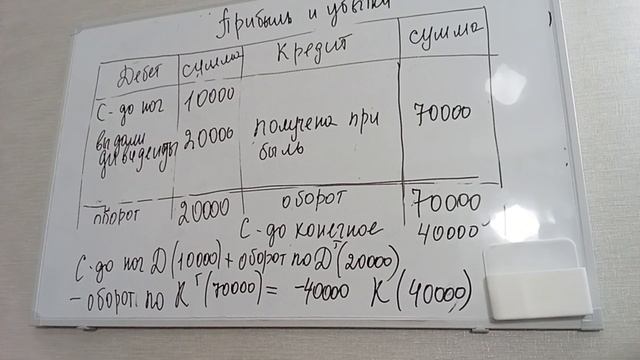 Прибыль и убытки
Дебет сумма Кредит сумма
С-до ног 10000
выдали дивиденды 20000 получена прибыль 70000
оборот 20000 оборот 70000
С-до конечное 40000
С-до ног D (10000) + оборот по Dт (20000)
- оборот. по Kт (70000) = -40000 K (40000)